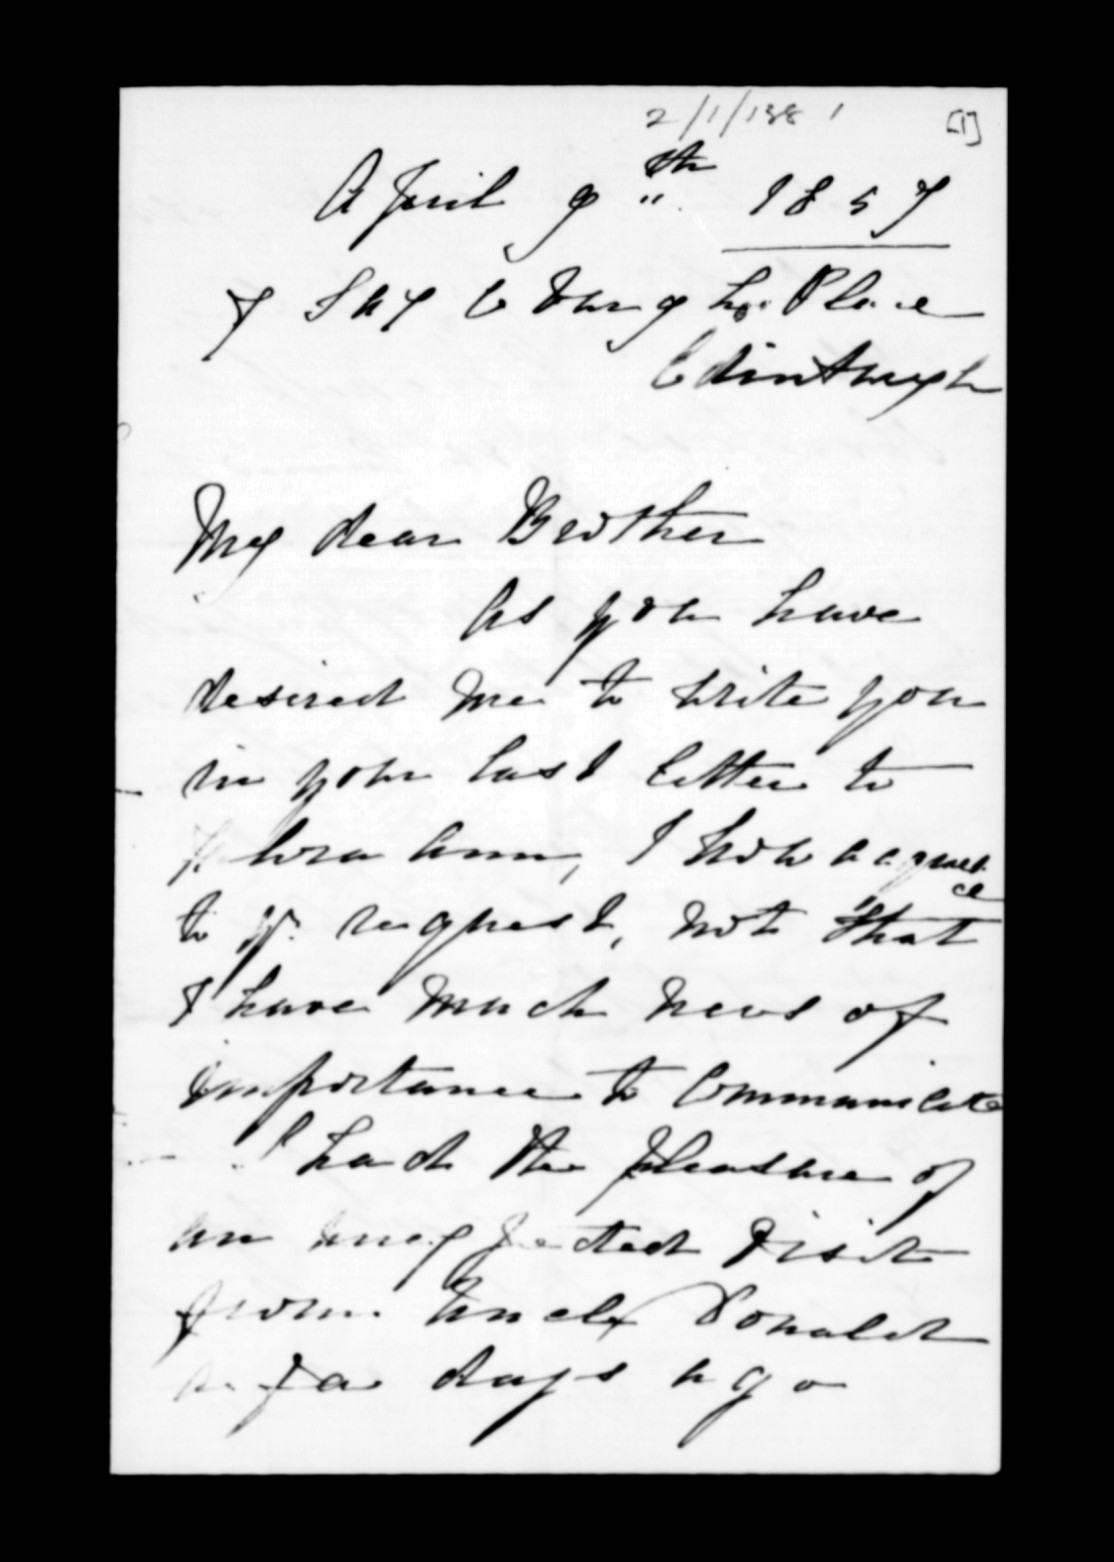 2/1/188 1 [1]
April 9th 1857
7 Saxe Cobourgh Place
Edinburgh
My dear Brother
As you have
desired me to write you
in your last letter to
Flora Ann, I now acquiesce
to yr. request, not that
I have much news of
importance to communicate
I had the pleasure of
an unexpected visit
from Uncle Donald
a few days ago